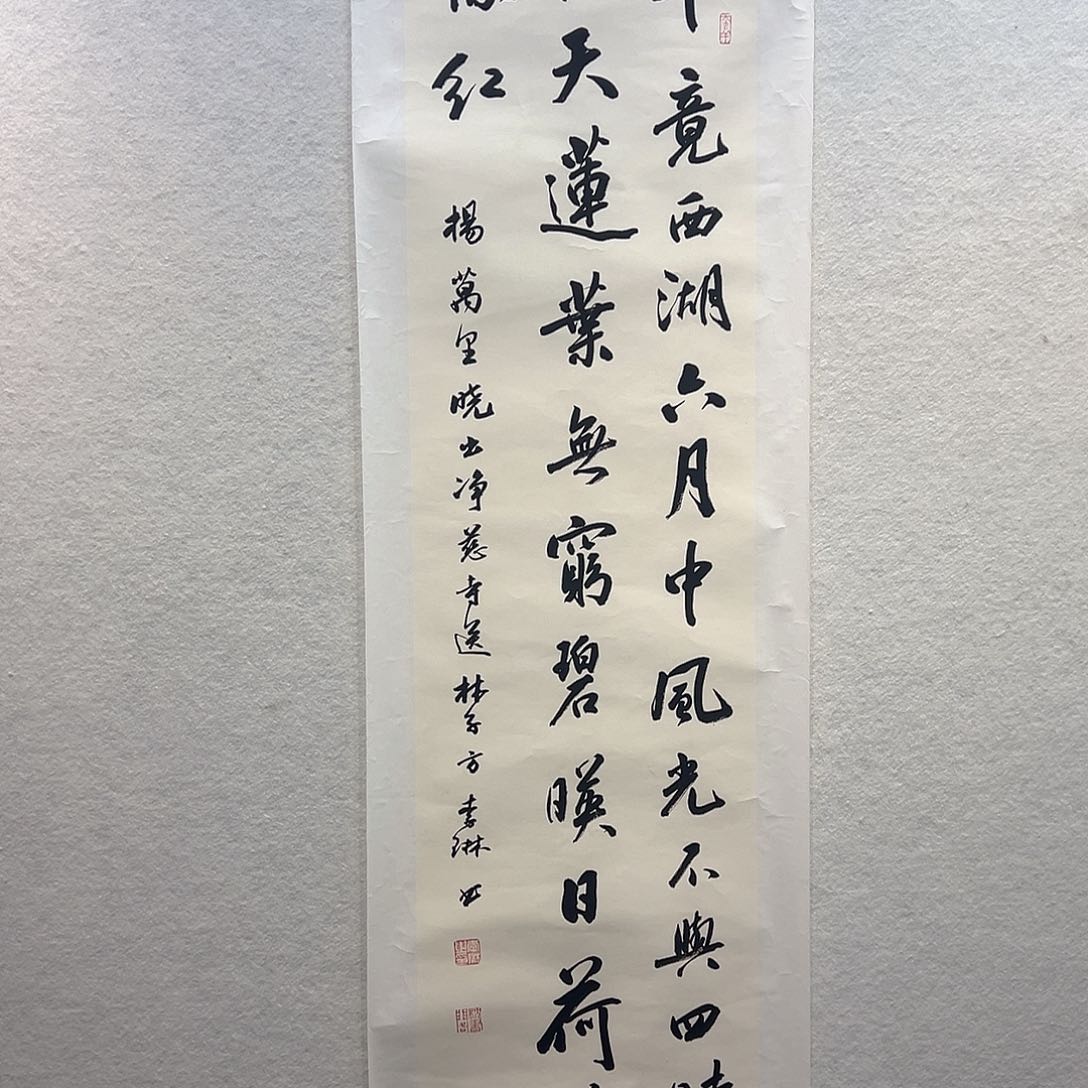 竟西湖六月中風光不與四時
天蓮葉無窮碧暎日荷
紅
楊萬里曉出净慈寺送林子方 李琳书